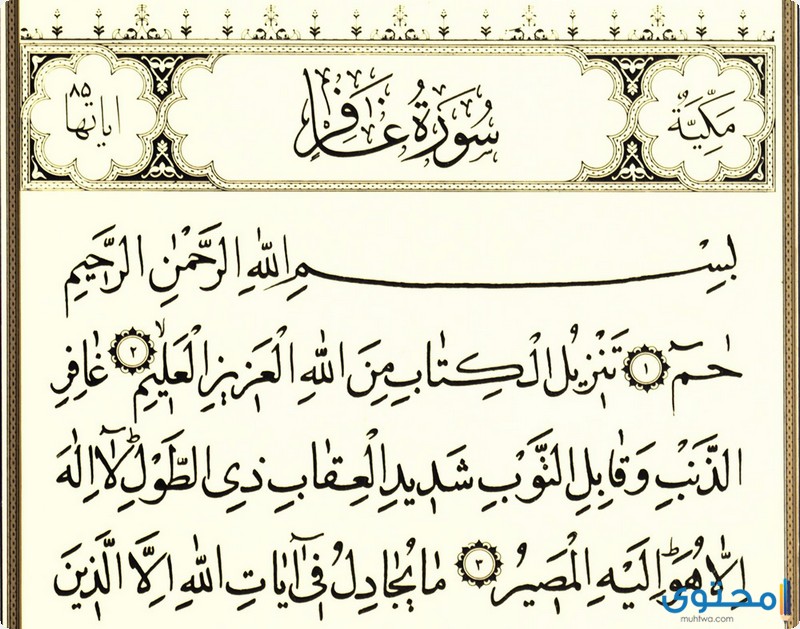 مَكِّيَّةٌ
سُورَةُ غَافِرٍ
اياتها ٨٥
بِسْمِ اللّٰهِ الرَّحْمٰنِ الرَّحِيمِ
حٰمٓ ١ تَنْزِيلُ الْكِتَابِ مِنَ اللّٰهِ الْعَزِيزِ الْعَلِيمِۙ ٢ غَافِرِ
الذَّنْبِ وَقَابِلِ التَّوْبِ شَدِيدِ الْعِقَابِ ذِى الطَّوْلِۜ لَٓا اِلٰهَ
اِلَّا هُوَۜ اِلَيْهِ الْمَصِيرُ ٣ مَا يُجَادِلُ فٖٓى اٰيَاتِ اللّٰهِ اِلَّا الَّذٖينَ
محتوى
muhtwa.com